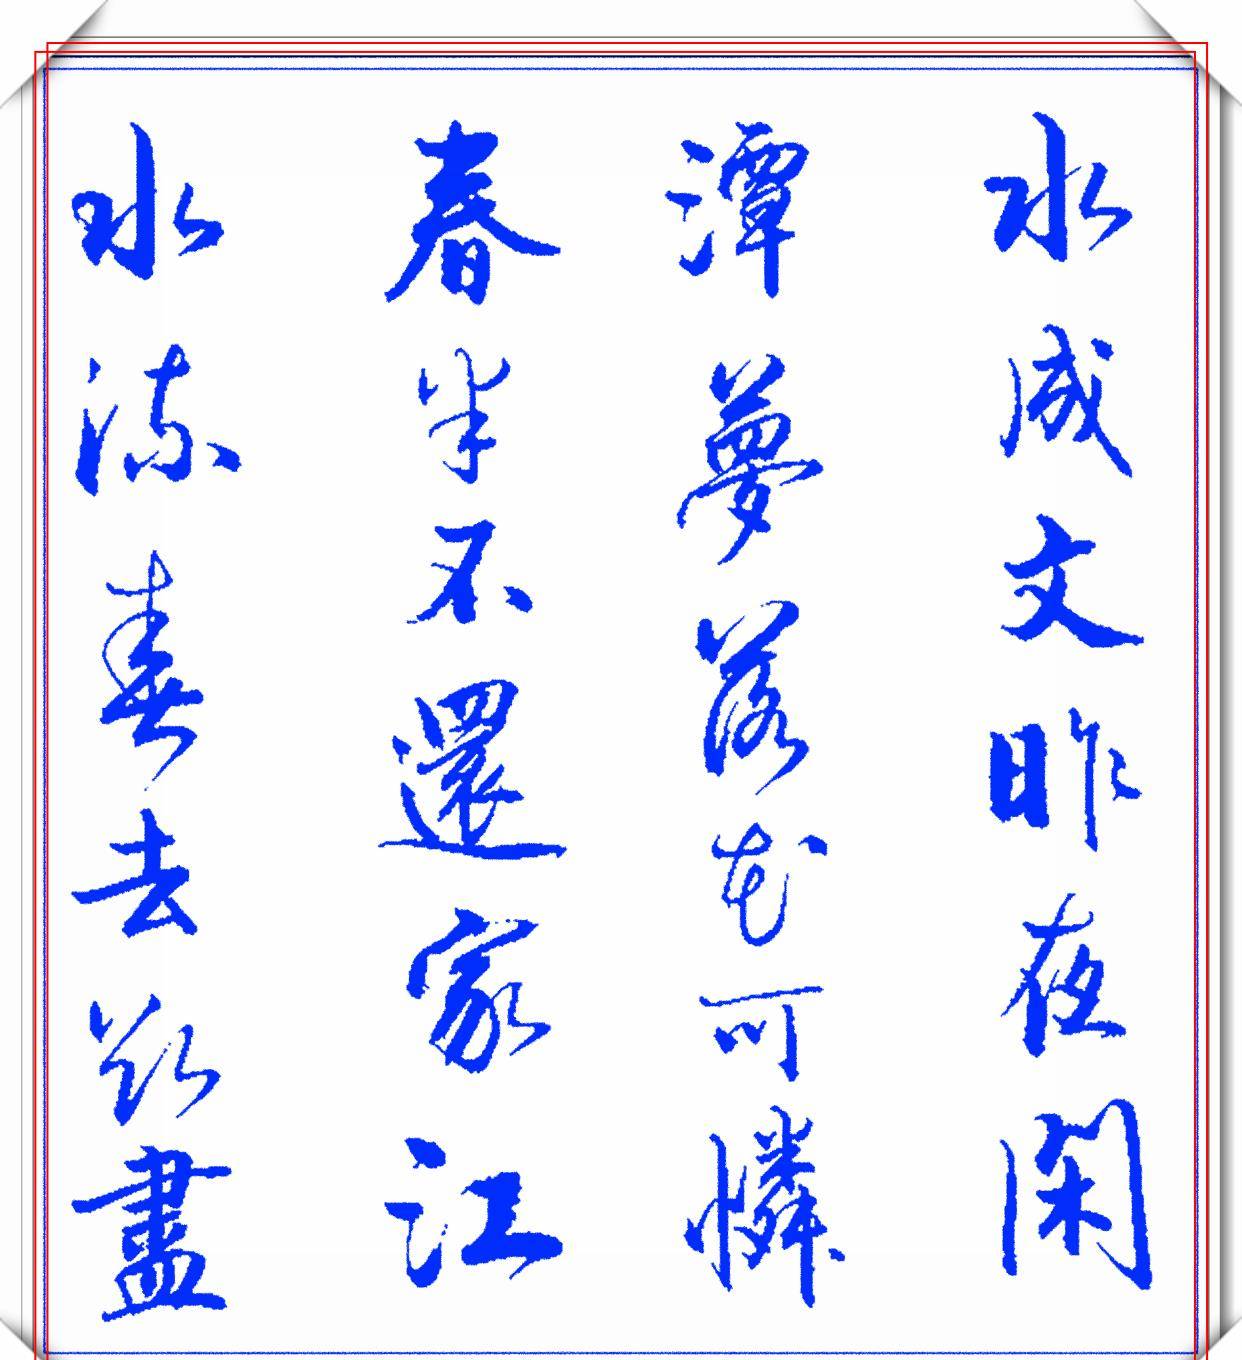 水成文昨夜閑
潭夢落花可憐
春半不還家江
水流春去欲盡